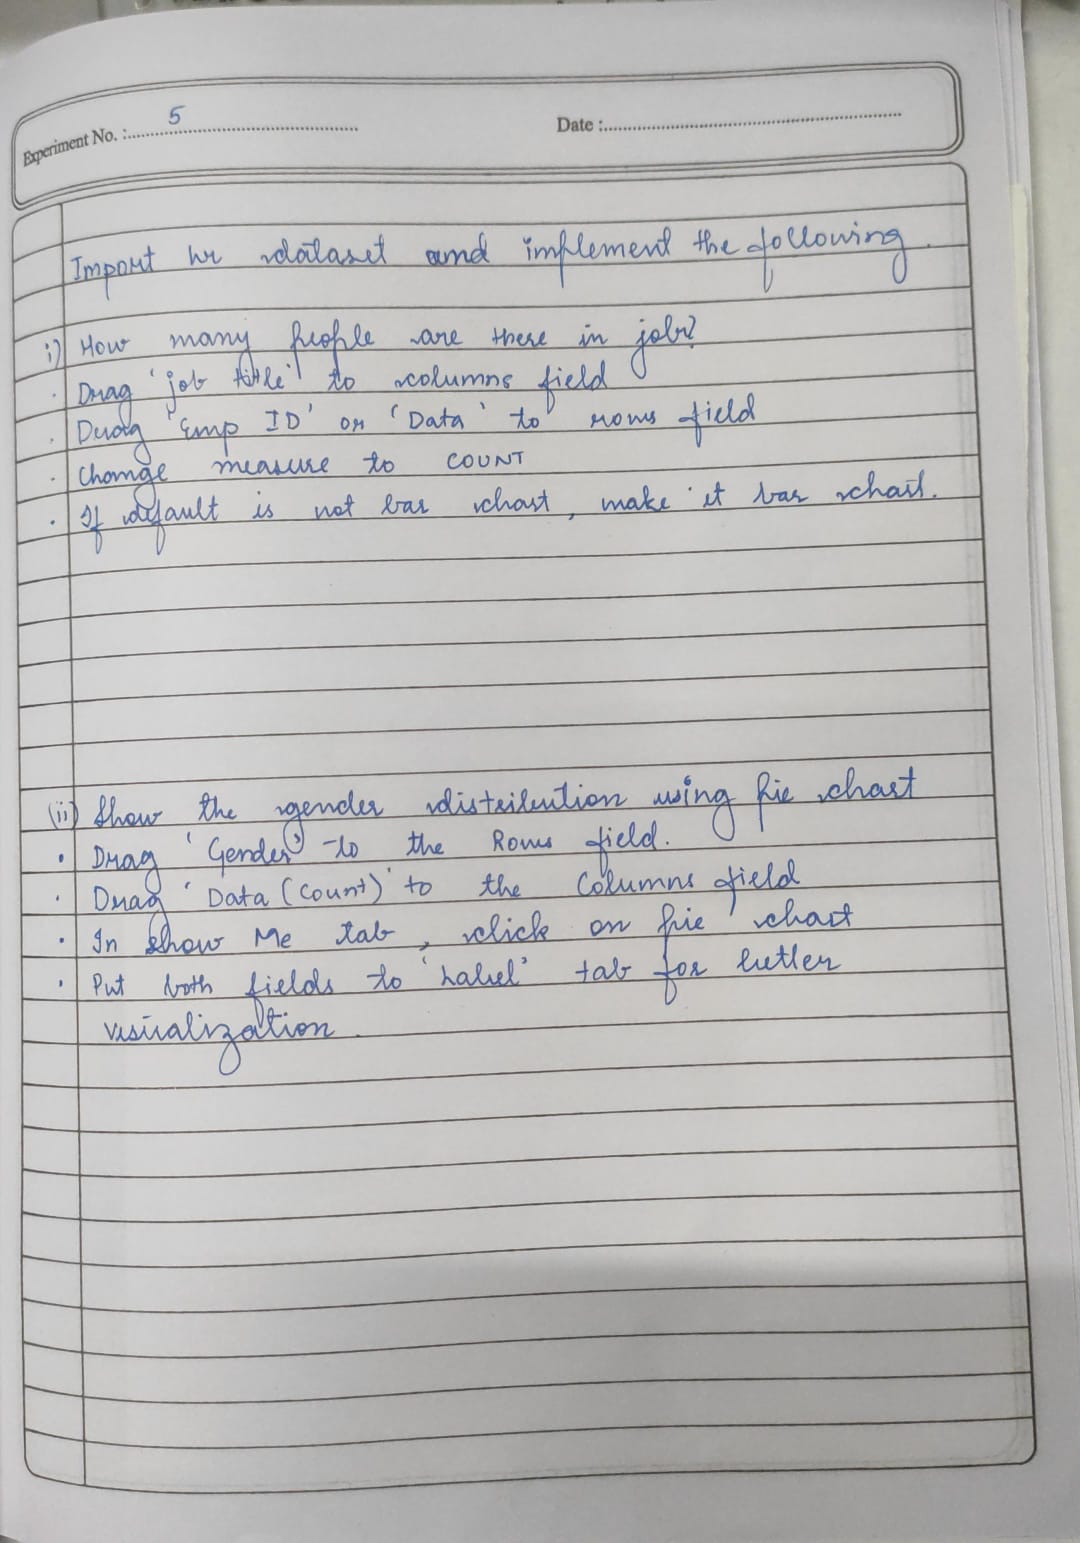 Experiment No. : 5 Date :
Import hr dataset and implement the following.
i) How many people are there in job?
. Drag 'job title' to columns field
. Drag 'Emp ID' or 'Data' to rows field
. Change measure to COUNT
. If default is not bar chart, make it bar chart.
(ii) Show the gender distribution using pie chart
. Drag 'Gender' to the Rows field.
. Drag 'Data (Count)' to the Columns field
. In Show Me tab, click on pie chart
. Put both fields to 'Label' tab for better
visualization.